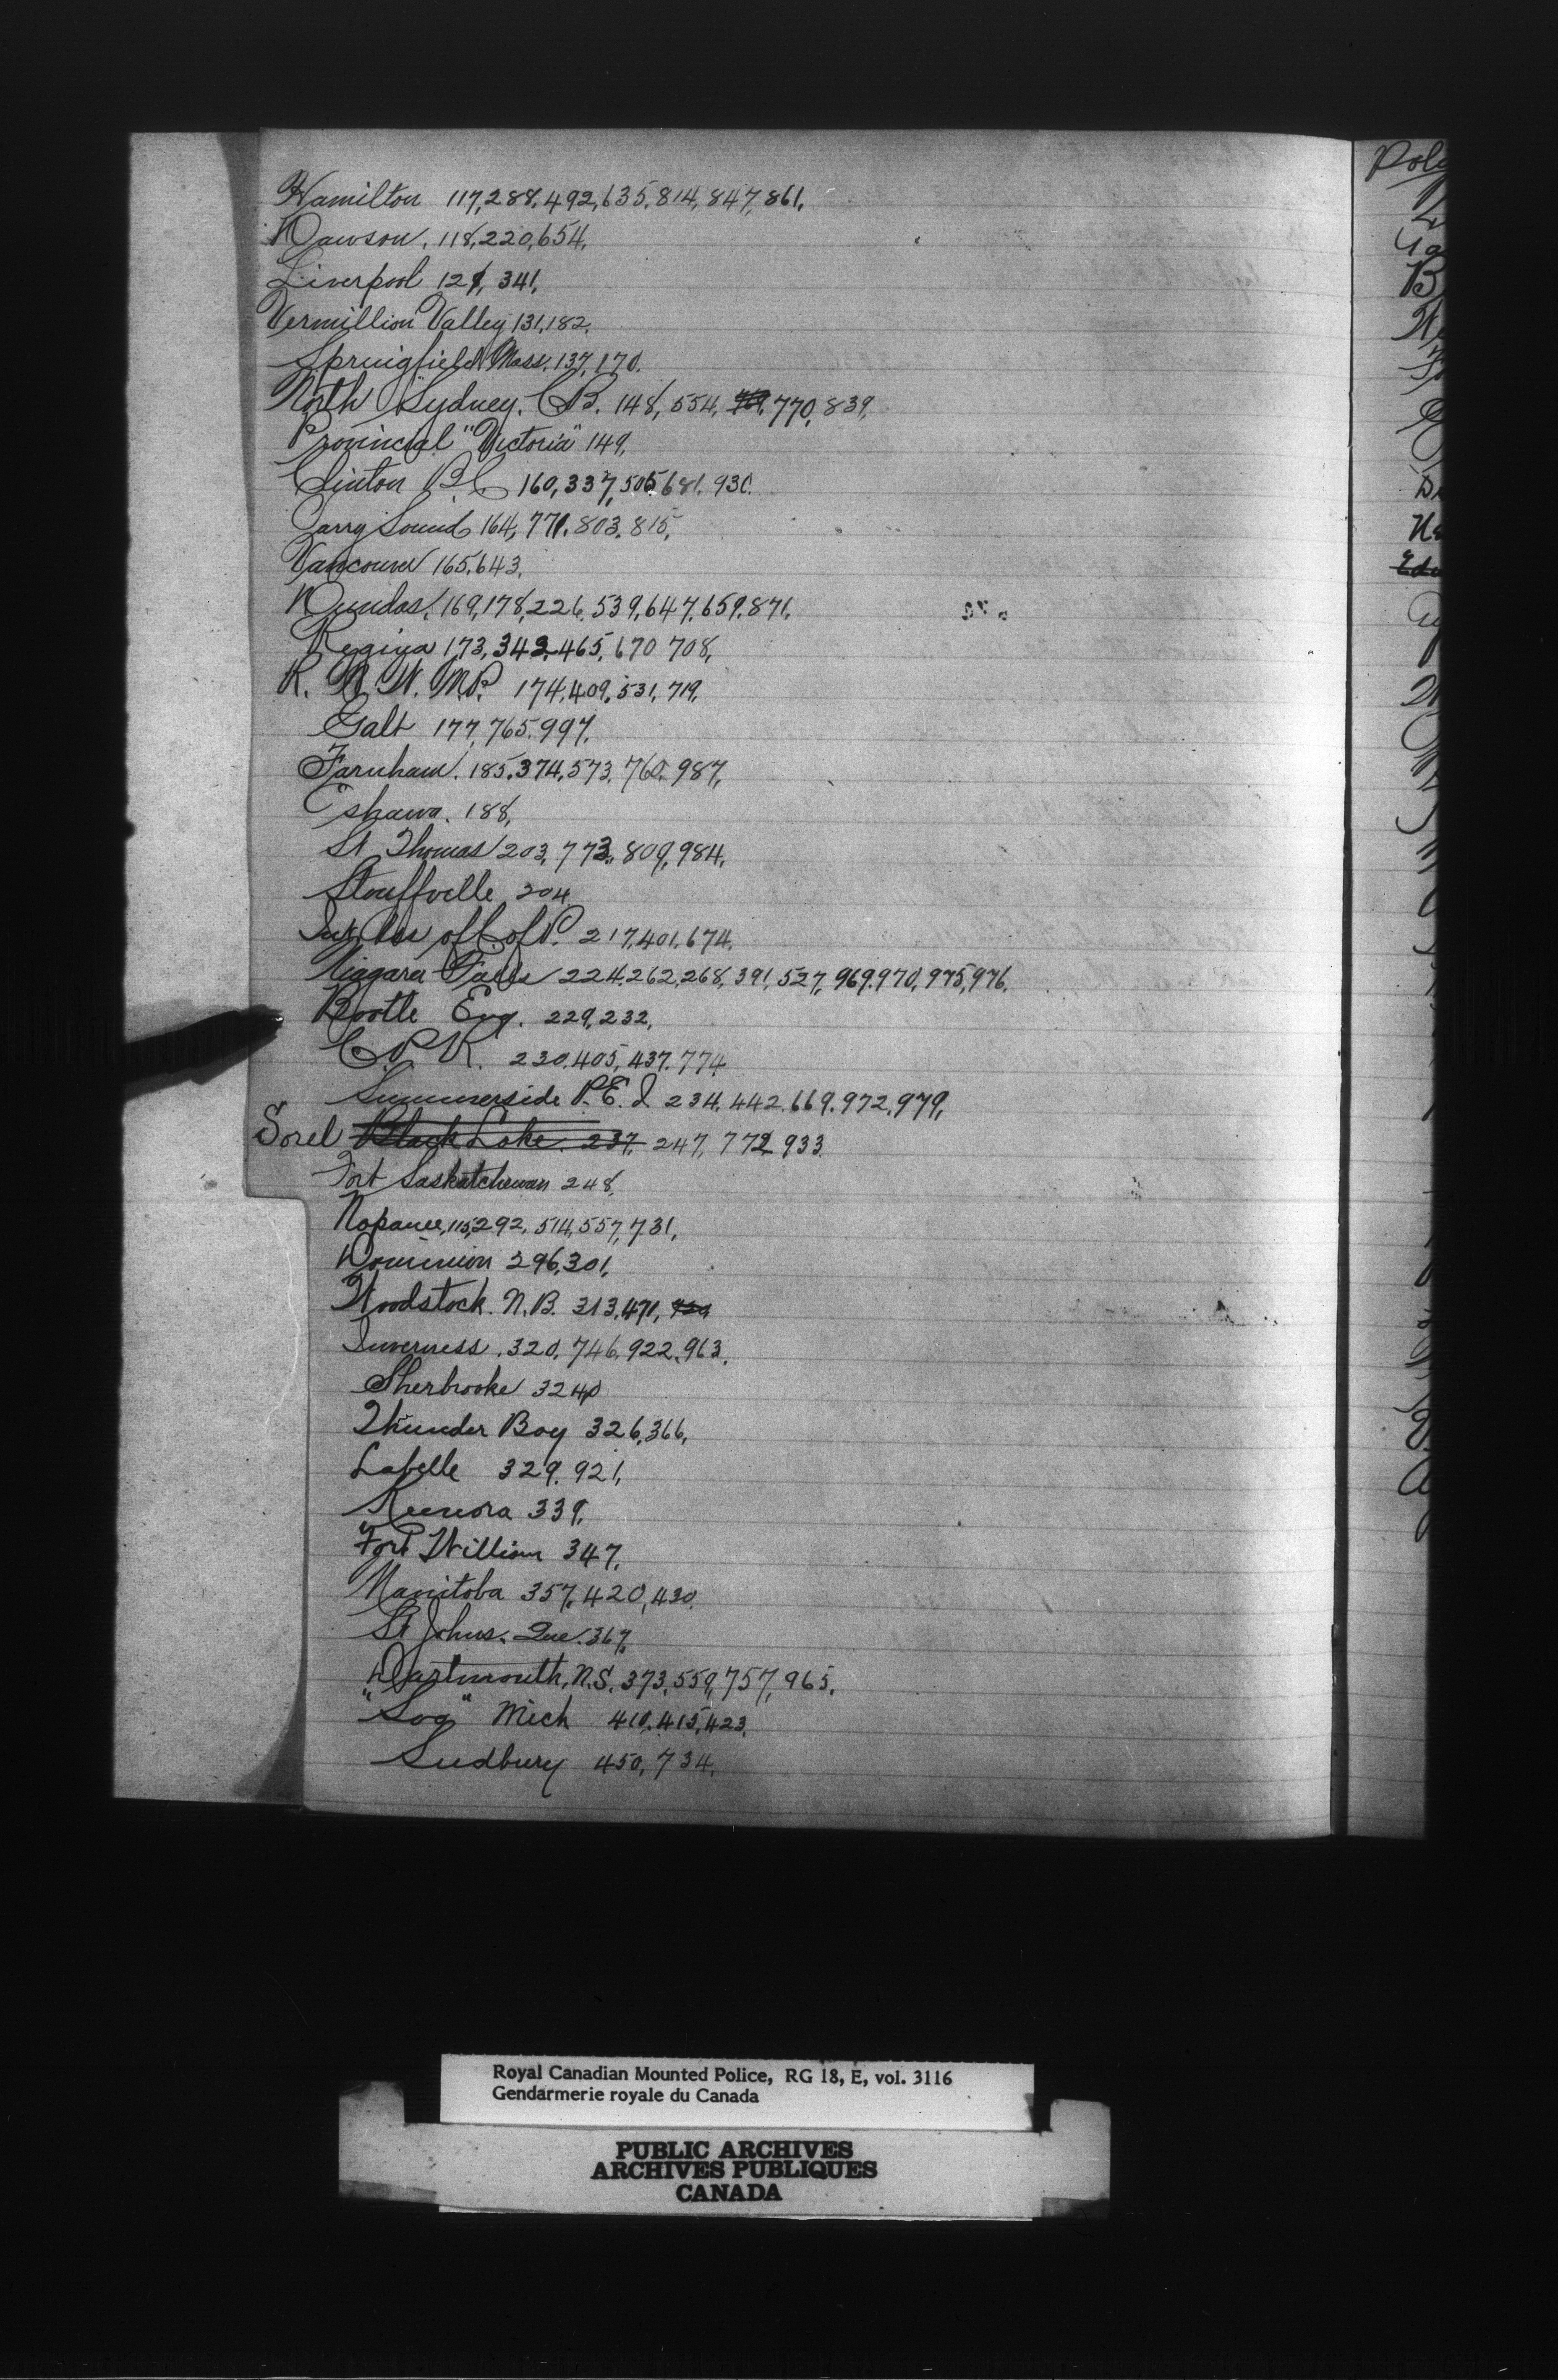 Hamilton 117, 288, 492, 635, 814, 847, 861,
Dawson. 118, 220, 654,
Liverpool 121, 341,
Vermillion Valley 131, 182,
Springfield Mass. 137, 170.
North Sydney. C.B. 148, 554, 769, 770, 839,
Provincial "Victoria" 149,
Clinton B.C. 160, 337, 505, 681, 930.
Parry Sound 164, 771, 803, 815,
Vancouver 165, 643,
Dundas, 169, 178, 226, 539, 647, 659, 871,
Regina 173, 342, 465, 670 708,
R. N. W. M.P. 174, 409, 531, 719,
Galt 177, 765, 997,
Farnham. 185, 374, 573, 760, 987,
Oshawa. 188,
St Thomas 203, 773, 809, 984,
Stouffville 204
of C. of P. 217, 401, 674,
Niagara Falls 224, 262, 268, 391, 527, 969, 970, 975, 976,
Bootle Eng. 229, 232,
C.P.R. 230, 405, 437, 774
Summerside P.E.I 234, 442, 669, 972, 979,
Sorel Black Lake. 237, 247, 772 933.
Fort Saskatchewan 248,
Napanee, 115, 292, 514, 557, 731,
Dominion 296, 301,
Woodstock. N.B. 313, 471,
Inverness. 320, 746, 922, 963,
Sherbrooke 324
Thunder Bay 326, 366,
Labelle 329, 921,
Keenora 339,
Fort William 347,
Manitoba 357, 420, 430,
St Johns. Que. 367,
Dartmouth, N.S. 373, 559, 757, 965,
"Soo" Mich 410, 415, 423,
Sudbury 450, 734,
Royal Canadian Mounted Police, RG 18, E, vol. 3116
Gendarmerie royale du Canada
PUBLIC ARCHIVES
ARCHIVES PUBLIQUES
CANADA